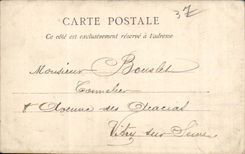 CARTE POSTALE
Ce côté est exclusivement réservé à l'adresse
37
Monsieur Bouslet
Tonnelier
8 Avenue des Glacias
Vitry sur Seine